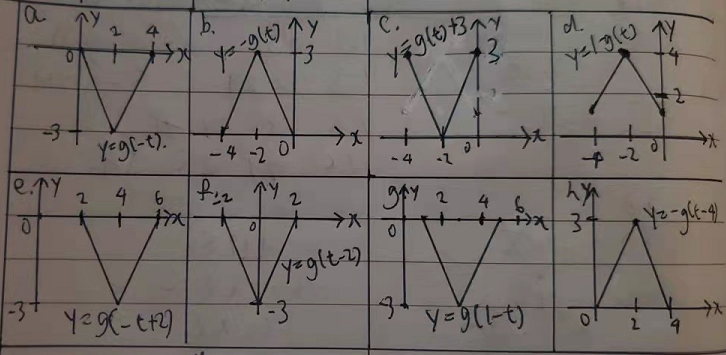 a. y 2 4 x
0
-3
y=g(-t).
b. y=-g(t) y
3
-4 -2 0 x
c. y=g(t)+3 y
3
-4 -2 0 x
d. y=1-g(t) y
4
2
-4 -2 0 x
e. y 2 4 6 x
0
-3
y=g(-t+2)
f. -2 y 2 x
0
y=g(t-2)
-3
g y 2 4 6 x
0
-3
y=g(1-t)
h y
3 y=-g(t-4)
0 2 4 x